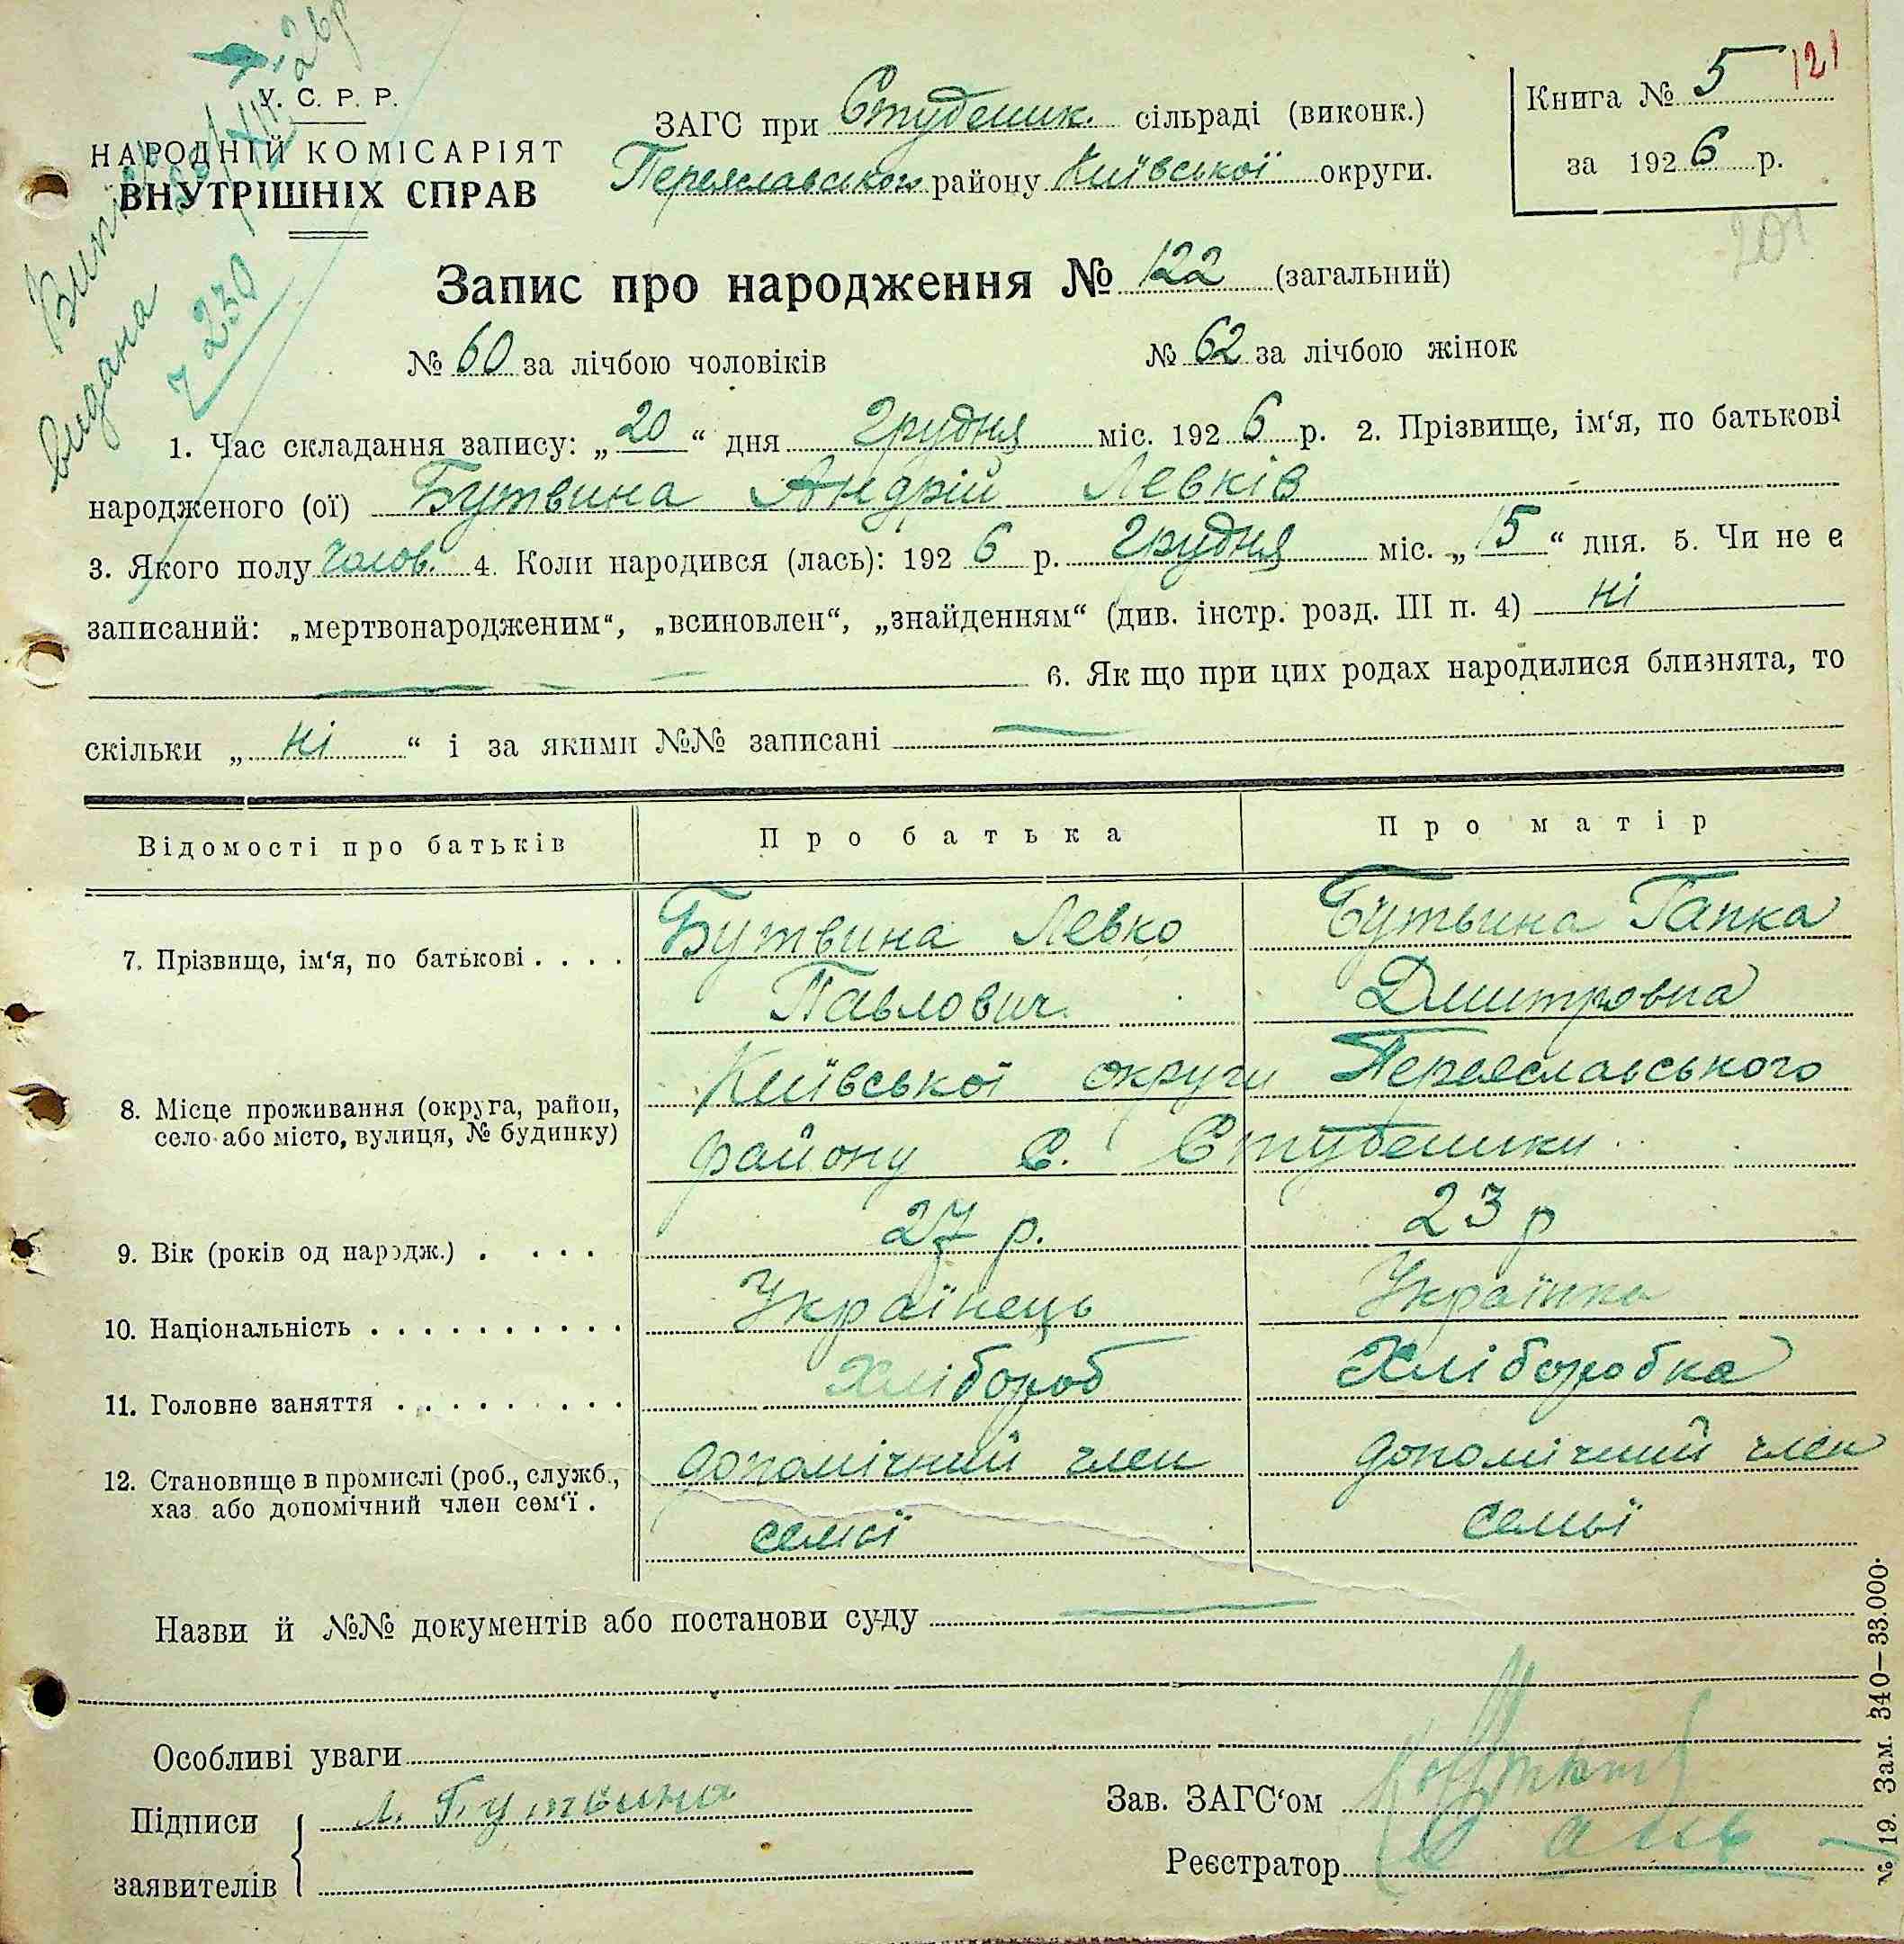 У. С. Р. Р.
НАРОДНІЙ КОМІСАРІЯТ
ВНУТРІШНІХ СПРАВ
видана
230
ЗАГС при Студеник. сільраді (виконк.)
Переяславського району Київської округи.
Книга № 5 121
за 1926 р.
201
Запис про народження № 122 (загальний)
№ 60 за лічбою чоловіків № 62 за лічбою жінок
1. Час складання запису: „20“ дня Грудня міс. 1926 р. 2. Прізвище, ім‘я, по батькові
народженого (ої) Бутвина Андрій Левків
3. Якого полу чолов. 4. Коли народився (лась): 1926 р. Грудня міс. „15“ дня. 5. Чи не є
записаний: „мертвонародженим“, „всиновлен“, „знайденням“ (див. інстр. розд. III п. 4) ні
6. Як що при цих родах народилися близнята, то
скільки „ні“ і за якими №№ записані
Відомості про батьків Про батька Про матір
7. Прізвище, ім‘я, по батькові . . . . Бутвина Левко Бутвина Гапка
Павлович Дмитровна
Київської округи Переяславського
8. Місце проживання (округа, район,
село або місто, вулиця, № будинку)
району С. Студеники
9. Вік (років од народж.) . . . . 27 р. 23 р
10. Національність . . . . . . . . . . Українець Українка
11. Головне заняття . . . . . . . . . Хлібороб Хліборобка
12. Становище в промислі (роб., служб., допомічний член допомічний член
хаз. або допомічний член сем‘ї .
семьї семьї
Назви й №№ документів або постанови суду
Особливі уваги
Підписи Л. Бутвина Зав. ЗАГС‘ом
заявителів Реєстратор
№ 19 Зам. 340—33.000.